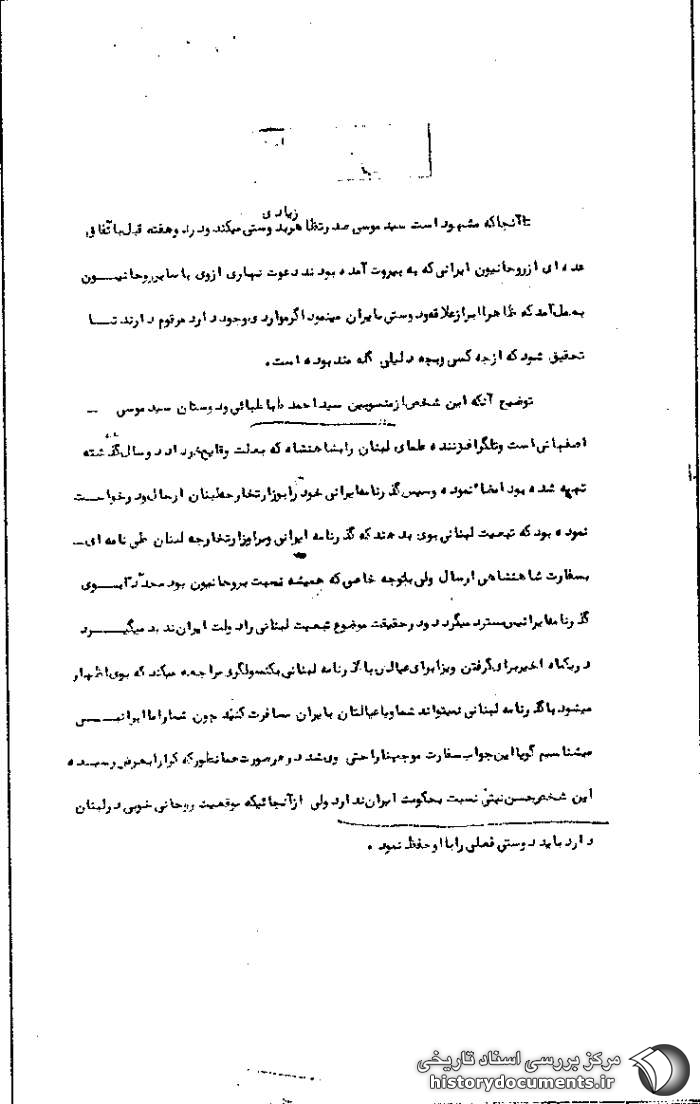 زیادی
تا آنجا که مشهود است سید موسی صدر تظاهر بدوستی میکند و در دو هفته قبل باتفاق
عده ای از روحانیون ایرانی که به بیروت آمده بودند دعوت نهاری از وی با سایر روحانیون
بعمل آمد که ظاهرا ابراز علاقه و دوستی بایران مینمود اگر مواردی وجود دارد مرقوم دارند تا
تحقیق شود که از چه کسی و بچه دلیلی گله مند بوده است .
توضیح آنکه این شخص از منسوبین سید احمد طباطبائی و دوستان سید موسی
اصفهانی است و تلگراف زننده علمای لبنان را بشاهنشاه که بعلت وقایع خرداد دو سال گذشته
تهیه شده بود امضاء نموده و سپس گذرنامه ایرانی خود را بوزارتخارجه لبنان ارسال و درخواست
نموده بود که تبعیت لبنانی بوی بدهند که گذرنامه ایرانی ویرا وزارتخارجه لبنان طی نامه ای
بسفارت شاهنشاهی ارسال ولی باتوجه خاصی که همیشه نسبت بروحانیون بود مجدداً بسوی
گذرنامه ایرانیش مسترد میگردد و در حقیقت موضوع تبعیت لبنانی را دولت ایران ندید میگیرد
در یکماه اخیر برای گرفتن ویزا برای عیالش با گذرنامه لبنانی بکنسولگری مراجعه میکند که بوی اظهار
میشود با گذرنامه لبنانی نمیتواند شما و یا عیالتان بایران مسافرت کنید چون شما را ما ایرانی
میشناسیم گویا این جواب سفارت موجب ناراحتی وی شده در هر صورت همانطور که کرارا بعرض رسیده
این شخص حسن نیتی نسبت بحکومت ایران ندارد ولی از آنجائیکه موقعیت روحانی خوبی در لبنان
دارد باید دوستی فعلی را با او حفظ نمود .
مرکز بررسی اسناد تاریخی
historydocuments.ir